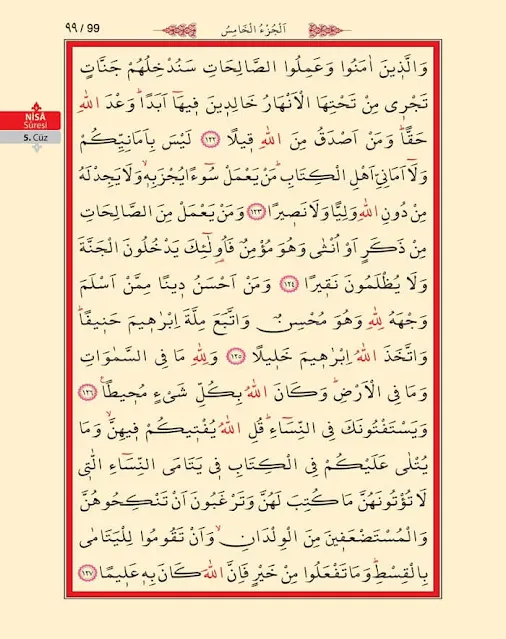 ٩٩ / 99
اَلْجُزْءُ الْخَامِسُ
NİSÂ
Sûresi
5. Cüz
وَالَّذ۪ينَ اٰمَنُوا وَعَمِلُوا الصَّالِحَاتِ سَنُدْخِلُهُمْ جَنَّاتٍ
تَجْر۪ي مِنْ تَحْتِهَا الْاَنْهَارُ خَالِد۪ينَ ف۪يهَٓا اَبَدًاۜ وَعْدَ اللّٰهِ
حَقًّاۜ وَمَنْ اَصْدَقُ مِنَ اللّٰهِ ق۪يلًا ﴿١٢٢﴾ لَيْسَ بِاَمَانِيِّكُمْ
وَلَٓا اَمَانِيِّ اَهْلِ الْكِتَابِۜ مَنْ يَعْمَلْ سُٓوءًا يُجْزَ بِه۪ۙ وَلَا يَجِدْ لَهُ
مِنْ دُونِ اللّٰهِ وَلِيًّا وَلَا نَص۪يرًا ﴿١٢٣﴾ وَمَنْ يَعْمَلْ مِنَ الصَّالِحَاتِ
مِنْ ذَكَرٍ اَوْ اُنْثٰى وَهُوَ مُؤْمِنٌ فَاُو۬لٰٓئِكَ يَدْخُلُونَ الْجَنَّةَ
وَلَا يُظْلَمُونَ نَق۪يرًا ﴿١٢٤﴾ وَمَنْ اَحْسَنُ د۪ينًا مِمَّنْ اَسْلَمَ
وَجْهَهُ لِلّٰهِ وَهُوَ مُحْسِنٌ وَاتَّبَعَ مِلَّةَ اِبْرٰه۪يمَ حَن۪يفًاۜ
وَاتَّخَذَ اللّٰهُ اِبْرٰه۪يمَ خَل۪يلًا ﴿١٢٥﴾ وَلِلّٰهِ مَا فِي السَّمٰوَاتِ
وَمَا فِي الْاَرْضِۜ وَكَانَ اللّٰهُ بِكُلِّ شَيْءٍ مُح۪يطًا۟ ﴿١٢٦﴾
وَيَسْتَفْتُونَكَ فِي النِّسَٓاءِۜ قُلِ اللّٰهُ يُفْت۪يكُمْ ف۪يهِنَّۙ وَمَا
يُتْلٰى عَلَيْكُمْ فِي الْكِتَابِ ف۪ي يَتَامَى النِّسَٓاءِ الّٰت۪ي
لَا تُؤْتُونَهُنَّ مَا كُتِبَ لَهُنَّ وَتَرْغَبُونَ اَنْ تَنْكِحُوهُنَّ
وَالْمُسْتَضْعَف۪ينَ مِنَ الْوِلْدَانِۙ وَاَنْ تَقُومُوا لِلْيَتَامٰى
بِالْقِسْطِۜ وَمَا تَفْعَلُوا مِنْ خَيْرٍ فَاِنَّ اللّٰهَ كَانَ بِه۪ عَل۪يمًا ﴿١٢٧﴾